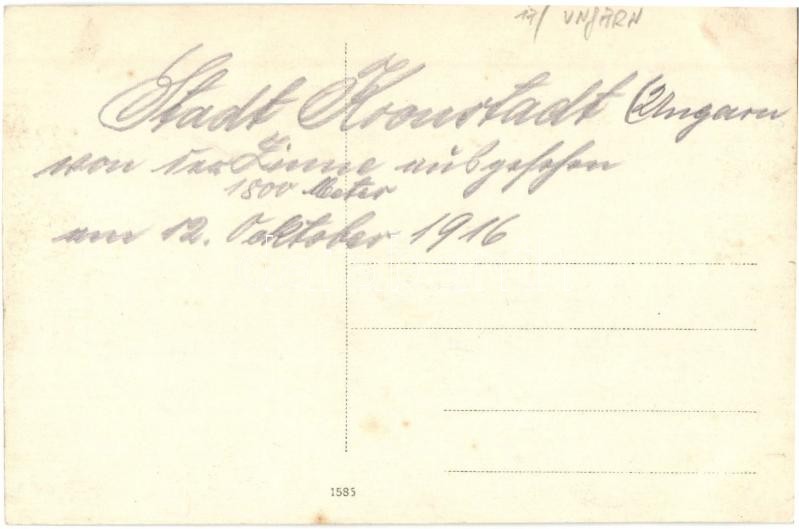 17/ UNGARN
Stadt Kronstadt (Ungarn
von der Zinne ausgesehen
1800 Meter
am 12. Oktober 1916
1585